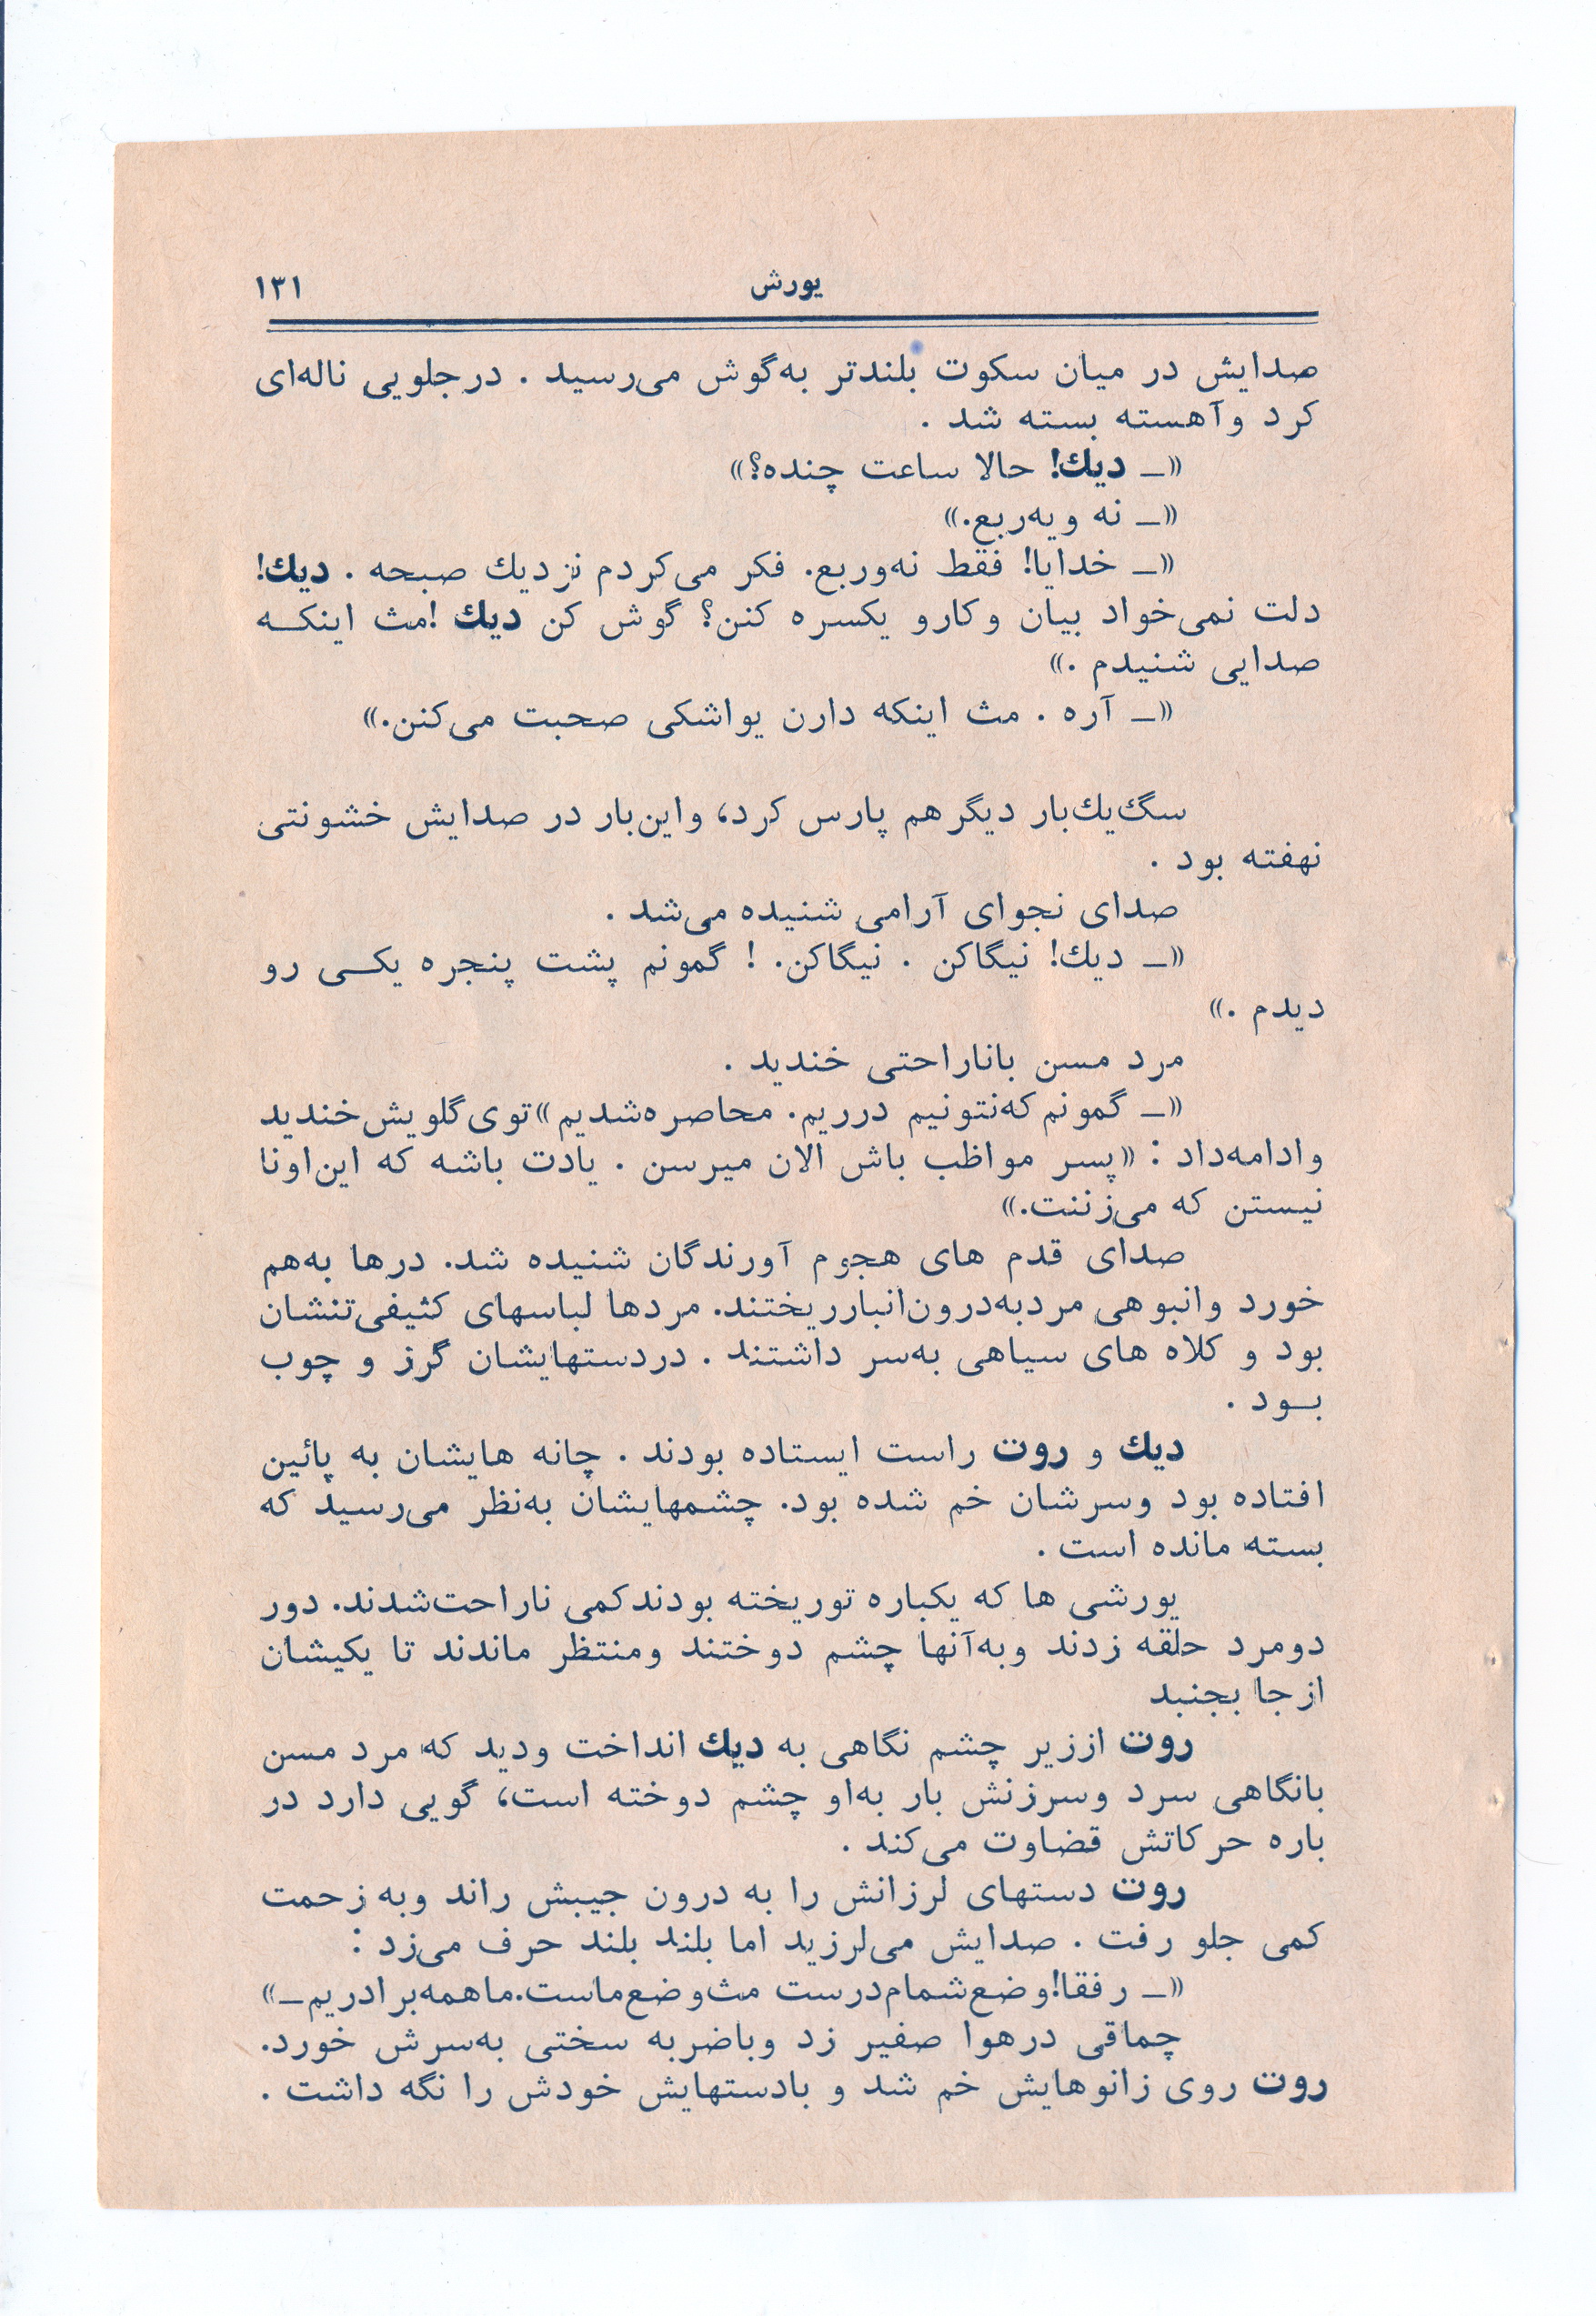 یورش ۱۳۱
صدایش در میان سکوت بلندتر به‌گوش می‌رسید . درجلویی ناله‌ای
کرد وآهسته بسته شد .
«ــ دیك! حالا ساعت چنده؟»
«ــ نه ویه‌ربع.»
«ــ خدایا! فقط نه‌وربع. فکر می‌کردم نزدیك صبحه . دیك!
دلت نمی‌خواد بیان وکارو یکسره کنن؟ گوش کن دیك !مث اینکـه
صدایی شنیدم .»
«ــ آره . مث اینکه دارن یواشکی صحبت می‌کنن.»
سگ‌یك‌بار دیگرهم پارس کرد، واین‌بار در صدایش خشونتی
نهفته بود .
صدای نجوای آرامی شنیده می‌شد .
«ــ دیك! نیگاکن . نیگاکن. ! گمونم پشت پنجره یکـی رو
دیدم .»
مرد مسن باناراحتی خندید .
«ــ گمونم‌که‌نتونیم درریم. محاصره‌شدیم»توی‌گلویش‌خندید
وادامه‌داد : «پسر مواظب باش الان میرسن . یادت باشه که این‌اونا
نیستن که می‌زننت.»
صدای قدم های هجوم آورندگان شنیده شد. درها به‌هم
خورد وانبوهی مردبه‌درون‌انبارریختند. مردها لباسهای کثیفی‌تنشان
بود و کلاه های سیاهی به‌سر داشتند . دردستهایشان گرز و چوب
بـود .
دیك و روت راست ایستاده بودند . چانه هایشان به پائین
افتاده بود وسرشان خم شده بود. چشمهایشان به‌نظر می‌رسید که
بسته مانده است .
یورشی ها که یکباره توریخته بودندکمی ناراحت‌شدند. دور
دومرد حلقه زدند وبه‌آنها چشم دوختند ومنتظر ماندند تا یکیشان
ازجا بجنبد
روت اززیر چشم نگاهی به دیك انداخت ودید که مرد مسن
بانگاهی سرد وسرزنش بار به‌او چشم دوخته است، گویی دارد در
باره حرکاتش قضاوت می‌کند .
روت دستهای لرزانش را به درون جیبش راند وبه زحمت
کمی جلو رفت . صدایش می‌لرزید اما بلند بلند حرف می‌زد :
«ــ رفقا!وضع‌شمام‌درست مث‌وضع‌ماست.ماهمه‌برادریم‌ــ»
چماقی درهوا صفیر زد وباضربه سختی به‌سرش خورد.
روت روی زانوهایش خم شد و بادستهایش خودش را نگه داشت .